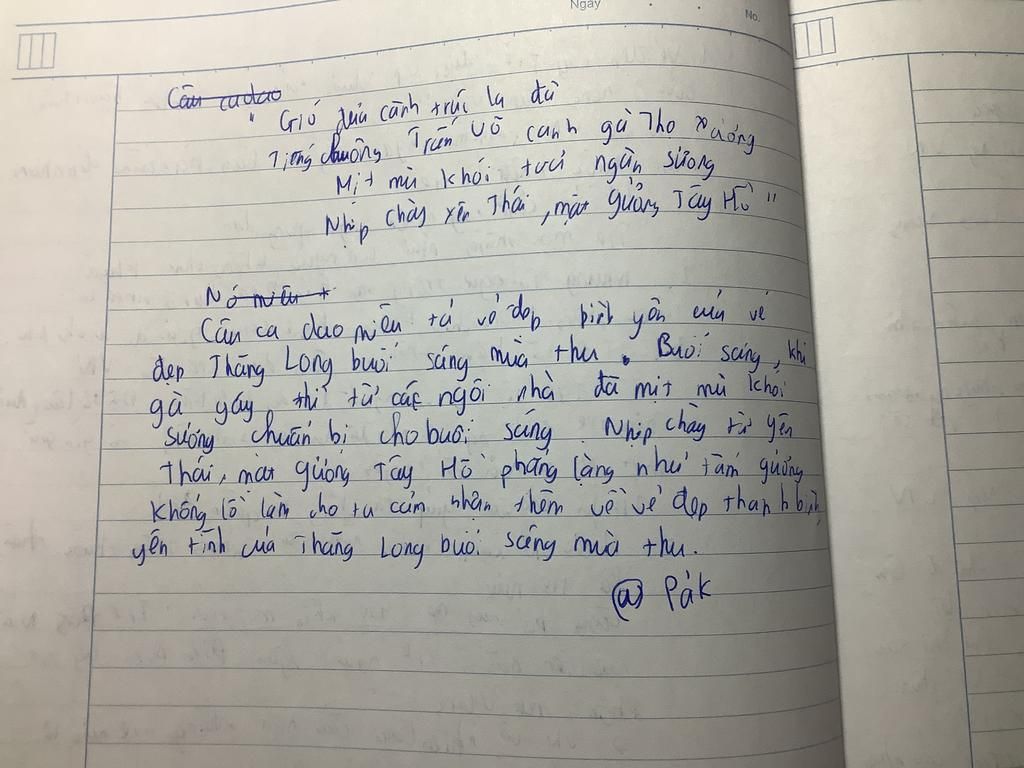 Ngày
No.
Câu ca dao
" Gió đưa cành trúc la đà
Tiếng chuông Trấn Võ canh gà Thọ Xương
Mịt mù khói toả ngàn sương
Nhịp chày Yên Thái, mặt gương Tây Hồ "
Nó miêu t
Câu ca dao miêu tả vẻ đẹp bình yên của vẻ
đẹp Thăng Long buổi sáng mùa thu. Buổi sáng, khi
gà gáy, thì từ các ngôi nhà đã mịt mù khói
sương chuẩn bị cho buổi sáng. Nhịp chày từ Yên
Thái, mặt gương Tây Hồ phẳng lặng như tấm gương
khổng lồ làm cho ta cảm nhận thêm về vẻ đẹp thanh bình,
yên tĩnh của Thăng Long buổi sáng mùa thu.
@ Pák